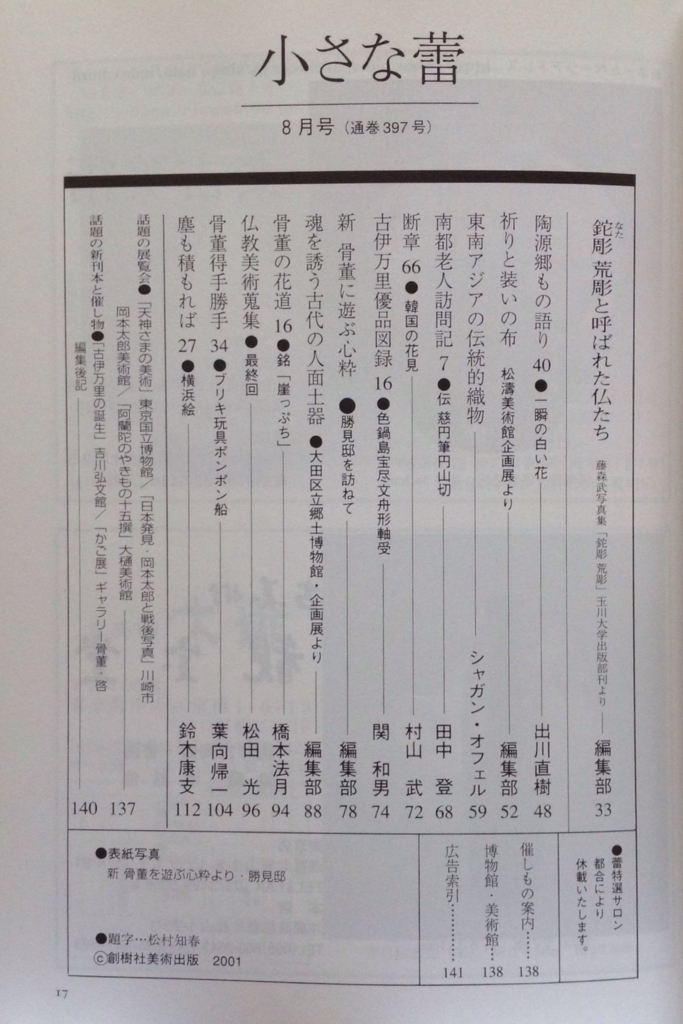 小さな蕾
8月号（通巻397号）
鉈彫 荒彫と呼ばれた仏たち 藤森武写真集「鉈彫 荒彫」玉川大学出版部刊より 編集部 33
なた
陶源郷もの語り 40 ●一瞬の白い花 出川直樹 48
祈りと装いの布 松濤美術館企画展より 編集部 52
東南アジアの伝統的織物 シャガン・オフェル 59
南都老人訪問記 7 ●伝 慈円筆円山切 田中 登 68
断章 66 ●韓国の花見 村山 武 72
古伊万里優品図録 16 ●色鍋島宝尽文舟形軸受 関 和男 74
新 骨董に遊ぶ心粋 ●勝見邸を訪ねて 編集部 78
魂を誘う古代の人面土器 ●大田区立郷土博物館・企画展より 編集部 88
骨董の花道 16 ●銘「崖っぷち」 橋本法月 94
仏教美術蒐集 ●最終回 松田 光 96
骨董得手勝手 34 ●ブリキ玩具ポンポン船 葉向帰一 104
塵も積もれば 27 ●横浜絵 鈴木康支 112
話題の展覧会●「天神さまの美術」東京国立博物館／「日本発見・岡本太郎と戦後写真」川崎市
岡本太郎美術館／「阿蘭陀のやきもの十五撰」大樋美術館 137
話題の新刊本と催し物●「古伊万里の誕生」吉川弘文館／「かご展」ギャラリー骨董・啓
編集後記 140
●蕾特選サロン
都合により
休載いたします。
催しもの案内……138
博物館・美術館…138
広告索引…………141
●表紙写真
新 骨董を遊ぶ心粋より・勝見邸
●題字…松村知春
©創樹社美術出版 2001
17